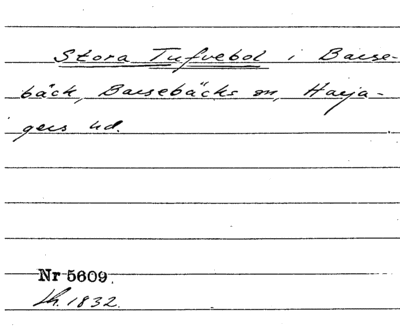 Stora Tufvebol i Barse-
bäck, Barsebäcks sn, Harja-
gers hd.
Nr 5609.
Lh. 1832.